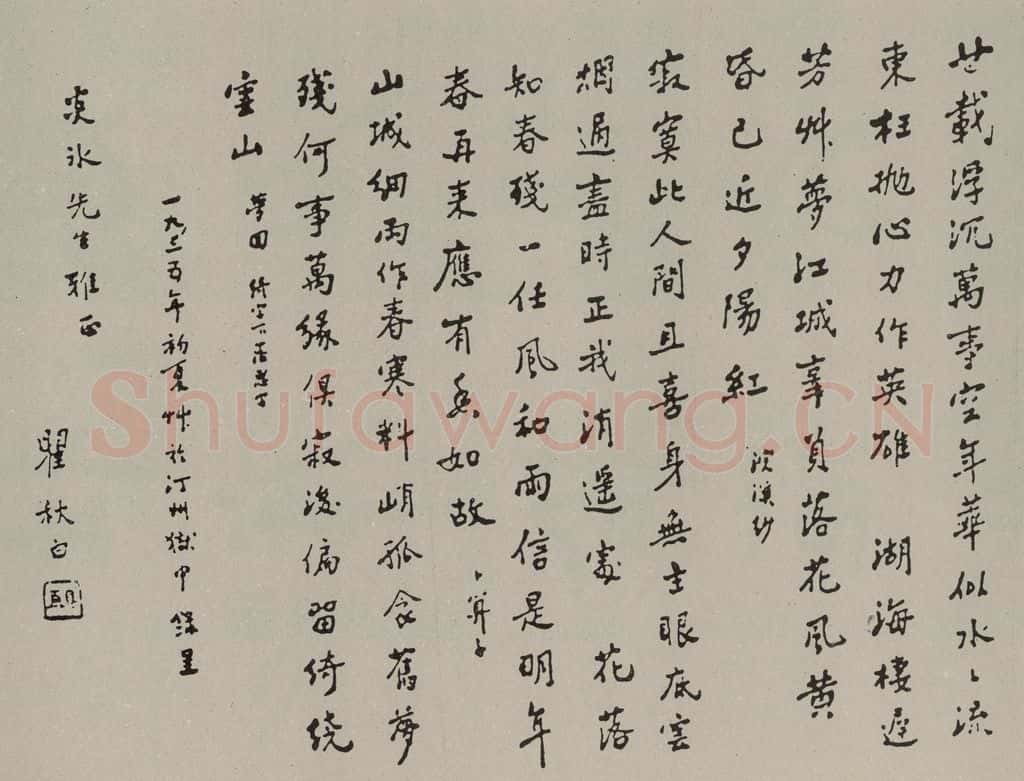 廿載浮沉萬事空年華似水、流
東枉抛心力作英雄 湖海棲遲
芳艸夢江城辜負落花風黄
昏已近夕陽紅 浣溪紗
寂寞此人間且喜身無主眼底雲
烟過盡時正我消遥處 花落
知春殘一任風和雨信是明年
春再来應有香如故 卜算子
山城细雨作春寒料峭孤衾舊夢
殘何事萬緣俱寂後偏留綺繞
雲山 夢回
一九三五年初夏艸於汀州獄中 錄呈
先生雅正
瞿秋白
Shufawang.CN